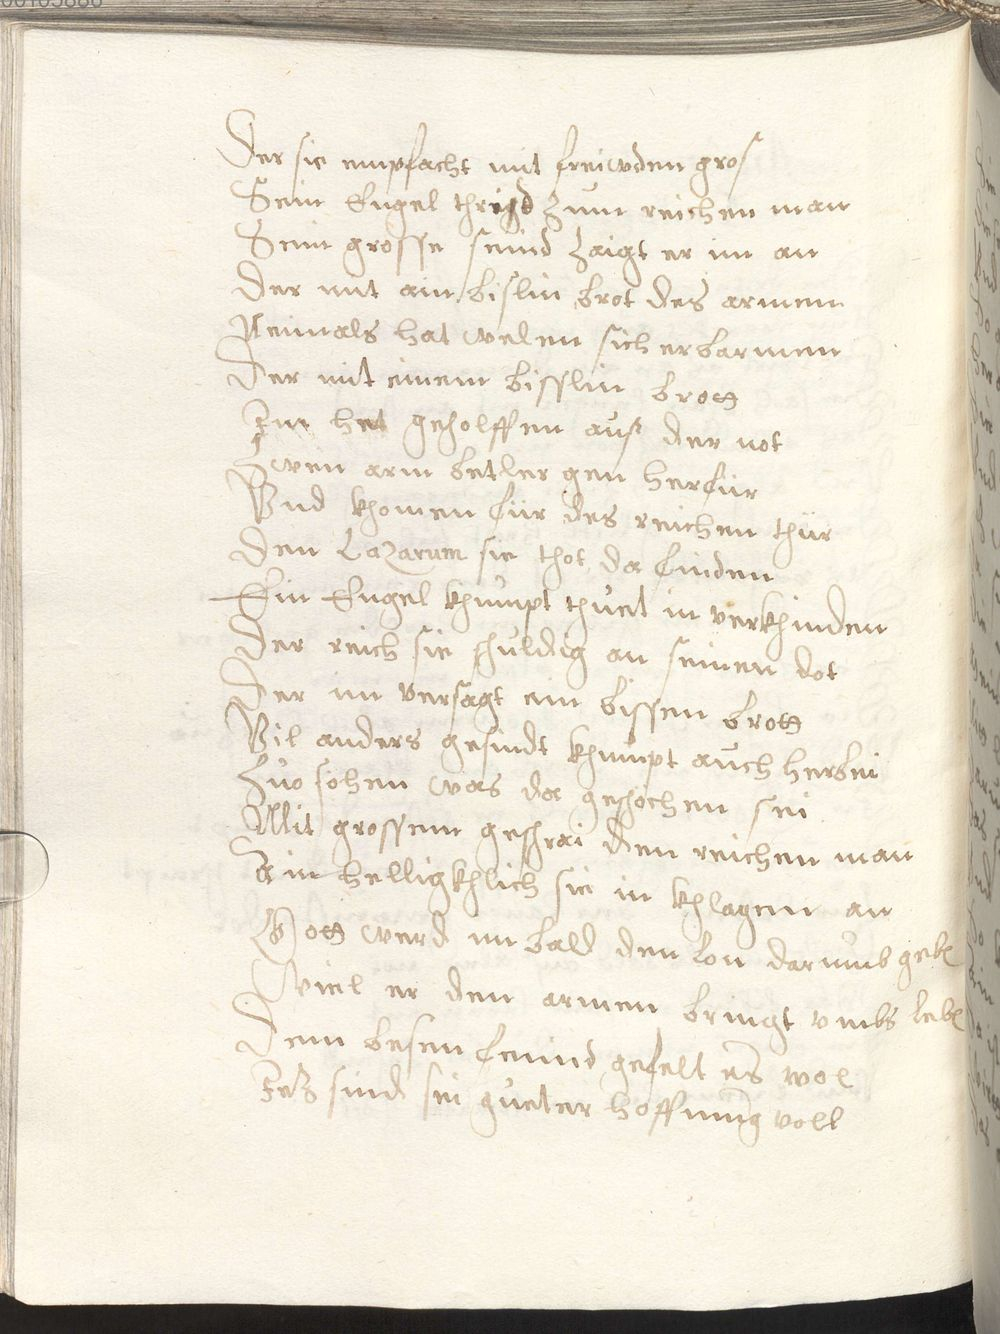 Der sie empfacht mit freiwden gros
Sein Engel thrigd zum reichen man
Sein grosse seind zaigt er im an
Der mit ain bislin brot des armen
Neimals hat welen sich erbarmen
Der mit einem bisslin brott
Im het geholffen aus der not
Zwen arm betler gen herfür
Vnd khomen für des reichen thür
Den Lazarum sie thot da finden
Ein Engel khumpt thuet in verkhinden
Der reich sie schuldig an seinen dot
Der im versagt ein bissen brott
Vil anders gesindt khumpt auch herbei
Zuo sehen was da geschehen sei
Mit grossem geschrai den reichen man
Ainhelligkhlich sie in khlagen an
Gott werd im bald den lon darumb gebē
Wiel er den armen bringt vmbs lebē
Dem besen feind gefelt es wol
Jetz sind sei gueter hoffnung voll